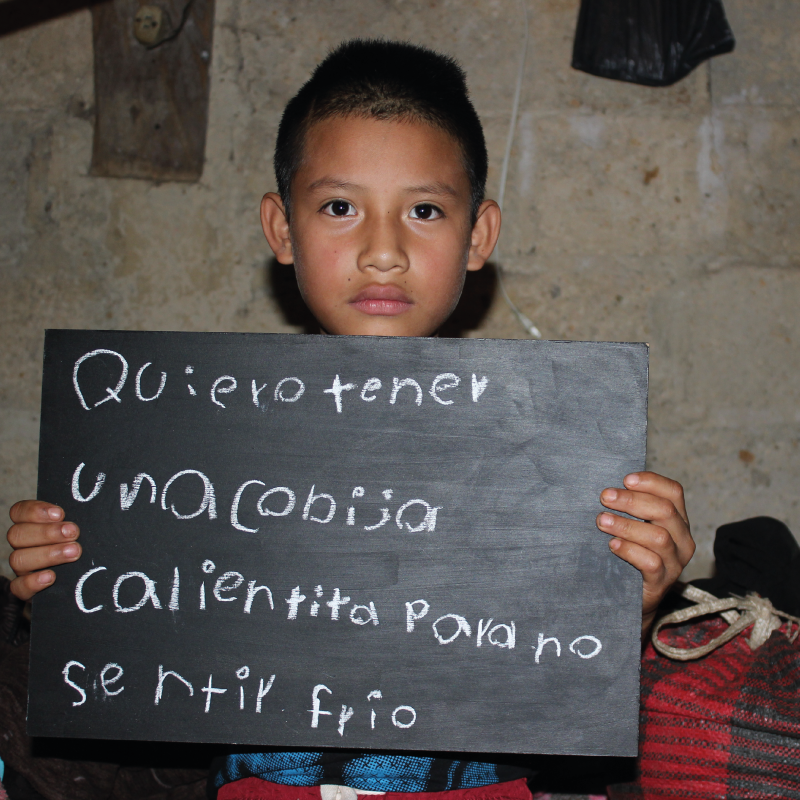 Quiero tener
una cobija
calientita para no
sentir frio